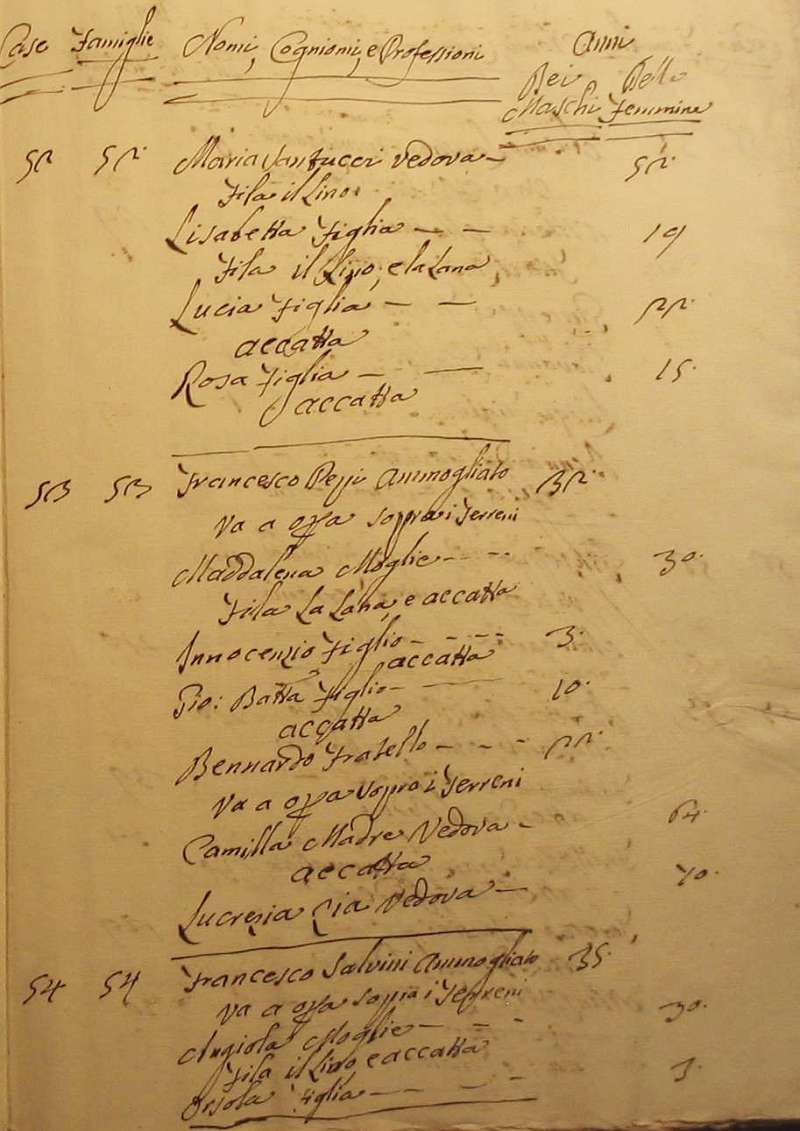 Case Famiglie Nomi, Cogniomi, e Professioni Anni
Dei Maschi Delle Femmine
52 52. Maria Santucci Vedova — 52.
Fila il Lino.
Lisabetta Figlia — — 19
Fila il Lino, e la Lana,
Lucia Figlia — — 22.
accatta
Rosa Figlia — — 15.
accatta
53 53 Francesco Pezzi Ammogliato 32.
Va a opra sopra i Terreni
Maddalena Moglie - - - - 30.
Fila La Lana, e accatta
Innocenzio Figlio - - - - 3.
accatta
Gio: Batta Figlio - — 10.
accatta
Bennardo Fratello - - - - 22.
Va a opra sopra i Terreni
Camilla Madre Vedova - 64.
accatta
Lucrezia Zia Vedova — 70.
54 54 Francesco Salvini Ammogliato 35.
Va a opra sopra i Terreni
Angiola Moglie - - - 30.
Fila il Lino, e accatta
Orsola Figlia - - - - 3.